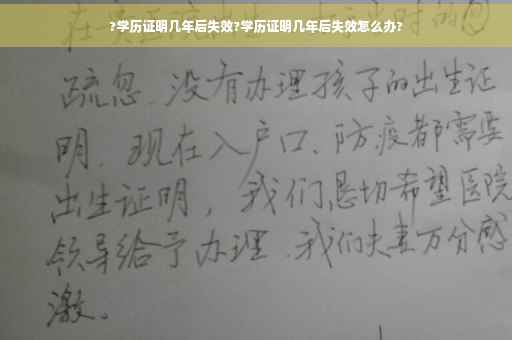 ?学历证明几年后失效?学历证明几年后失效怎么办?
疏忽.没有办理孩子的出生证
明.现在入户口、防疫都需要
出生证明，我们恳切希望医院
领导给予办理.我们夫妻万分感
激。